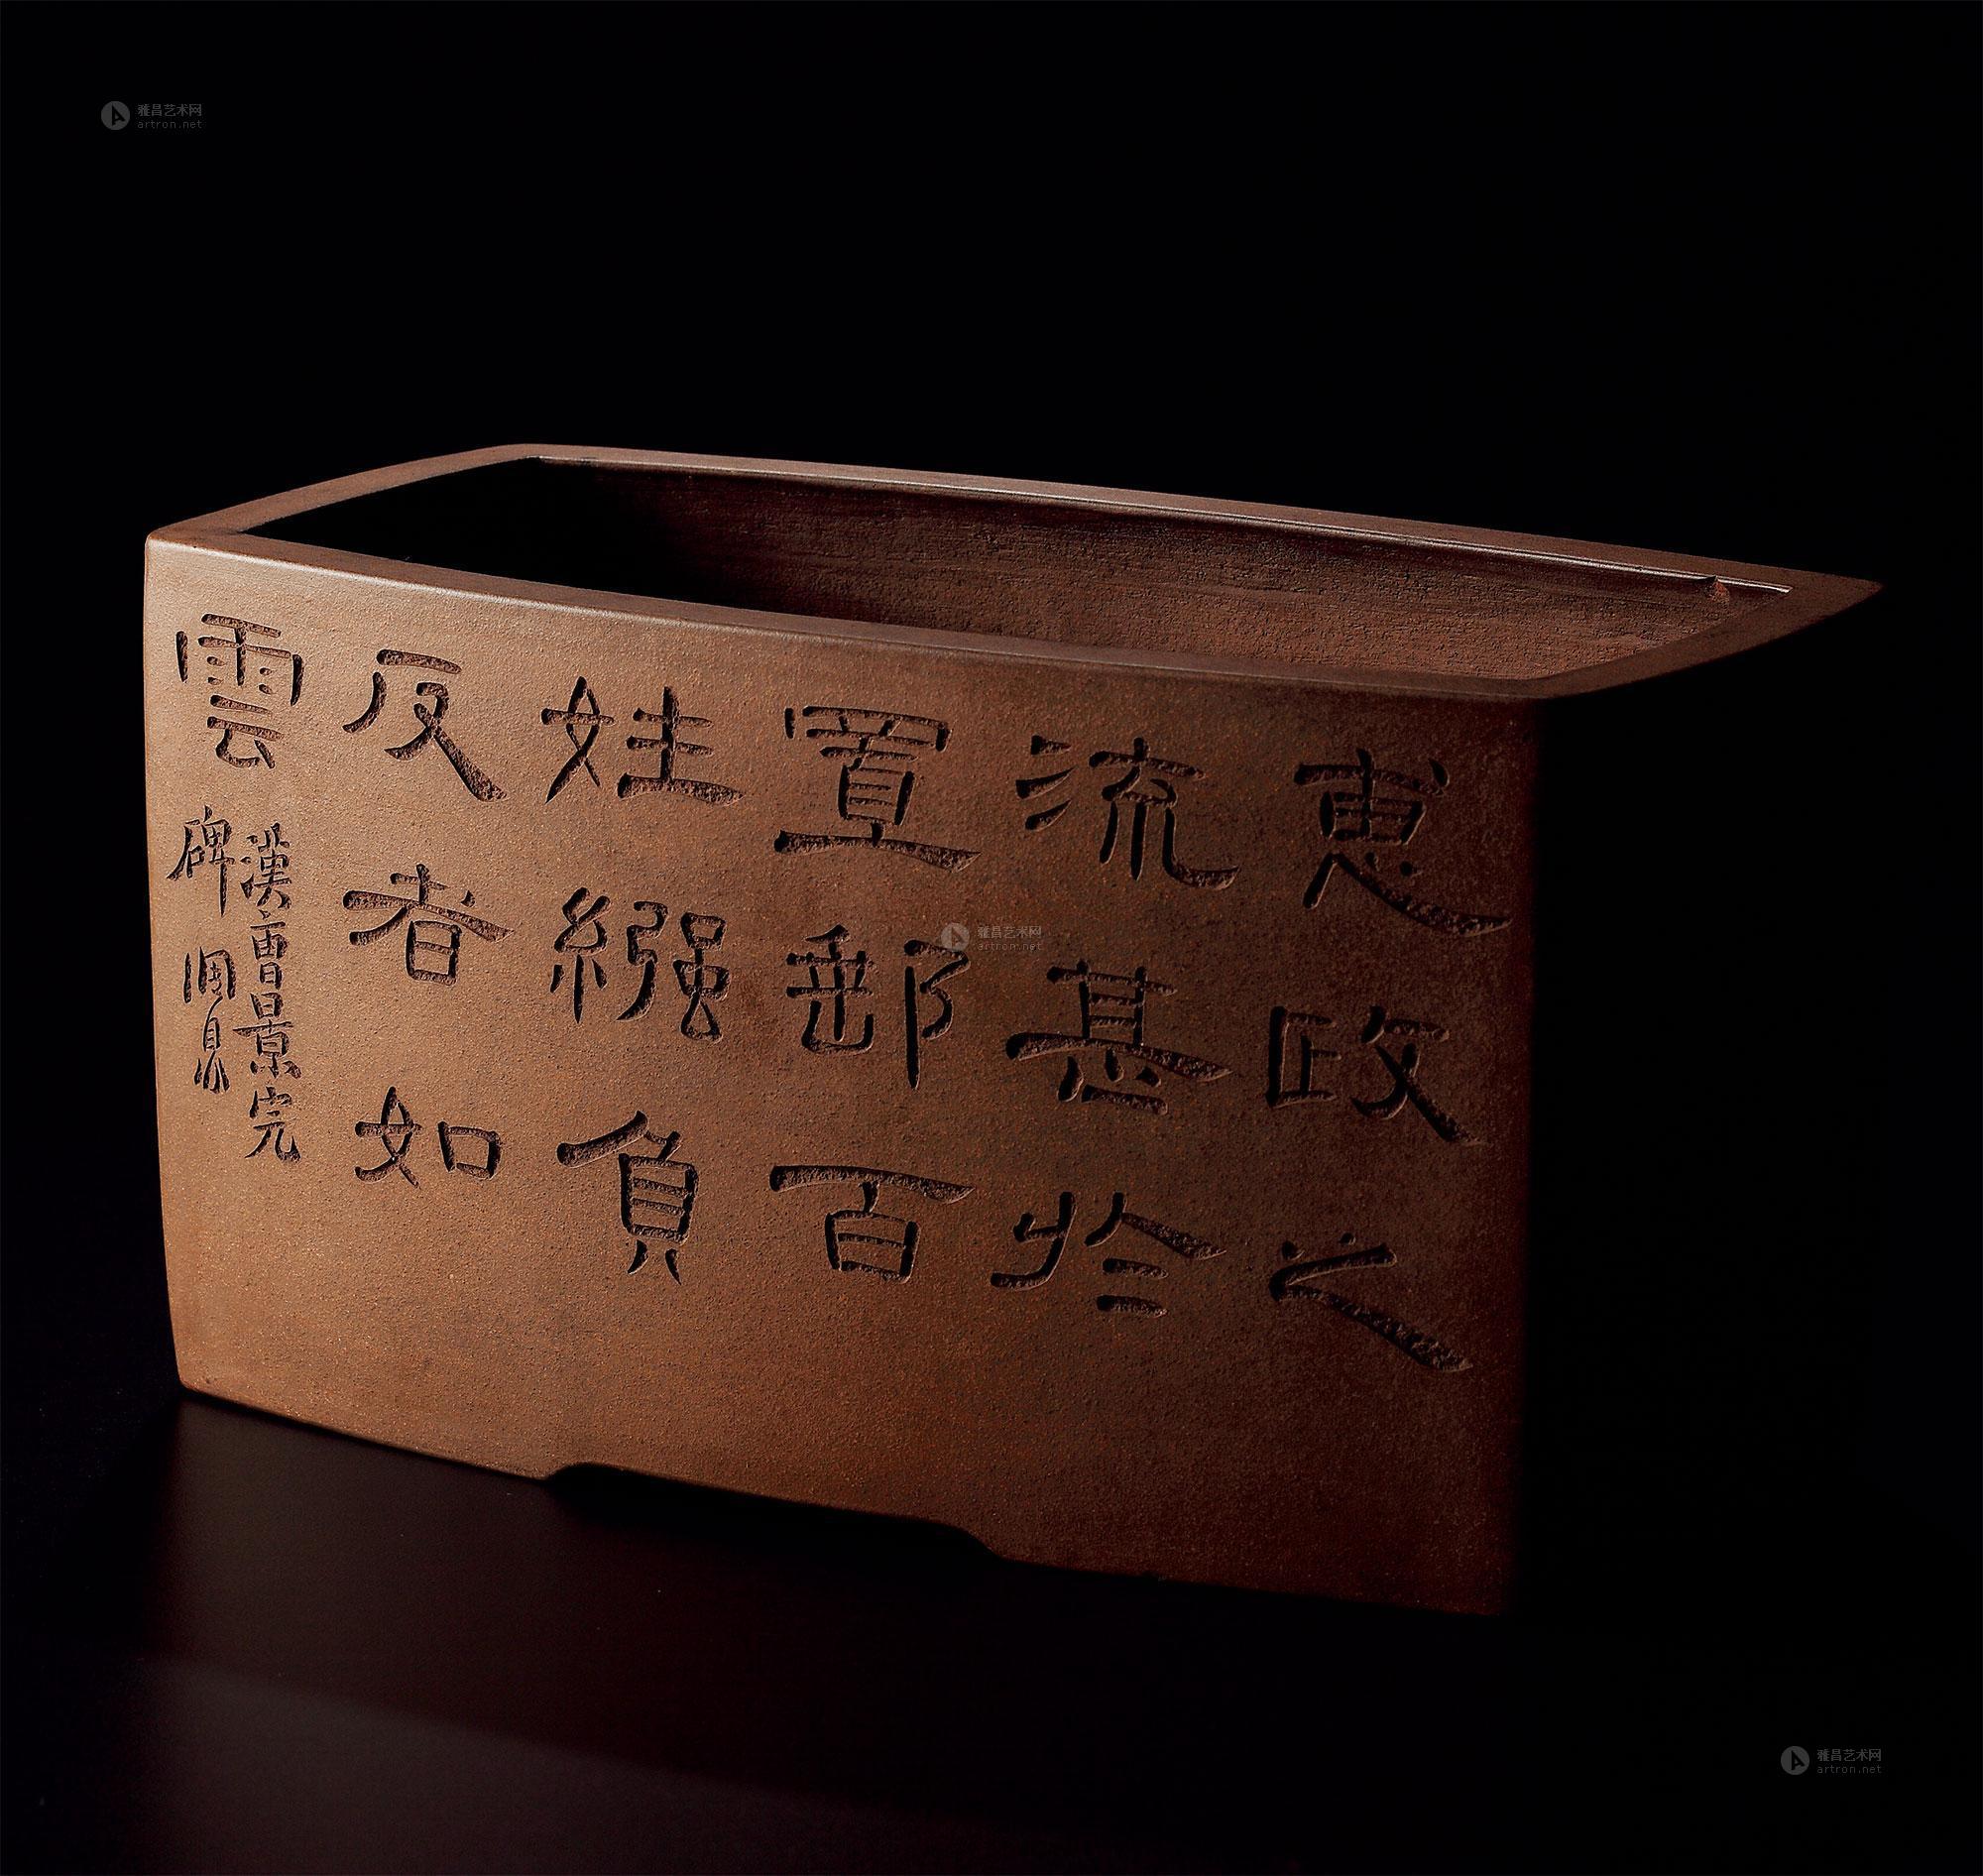 雅昌艺术网
artron.net
惠政之
流甚於
置郵百
姓繦負
反者如
雲
漢曹景完
碑
雅昌艺术网
artron.net
雅昌艺术网
artron.net